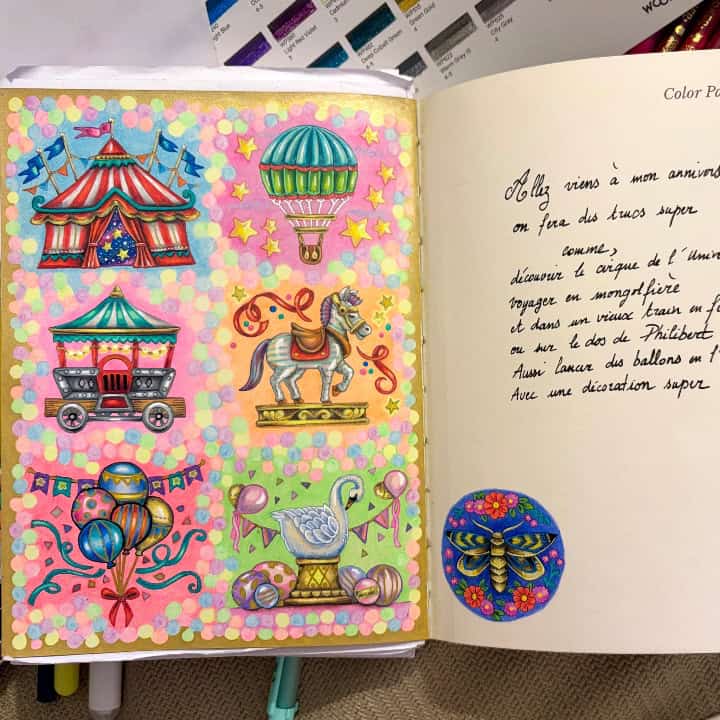 Light Blue
Light Red Violet
7
Deep Cobalt Green
Green Gold
4
City Gray
4
Color
Allez viens à mon
on fera des trucs super
comme,
découvrir le cirque de l'
voyager en mongolfière
et dans un vieux train en
ou sur le dos de Philibert
Aussi lancer des ballons en
Avec une décoration super